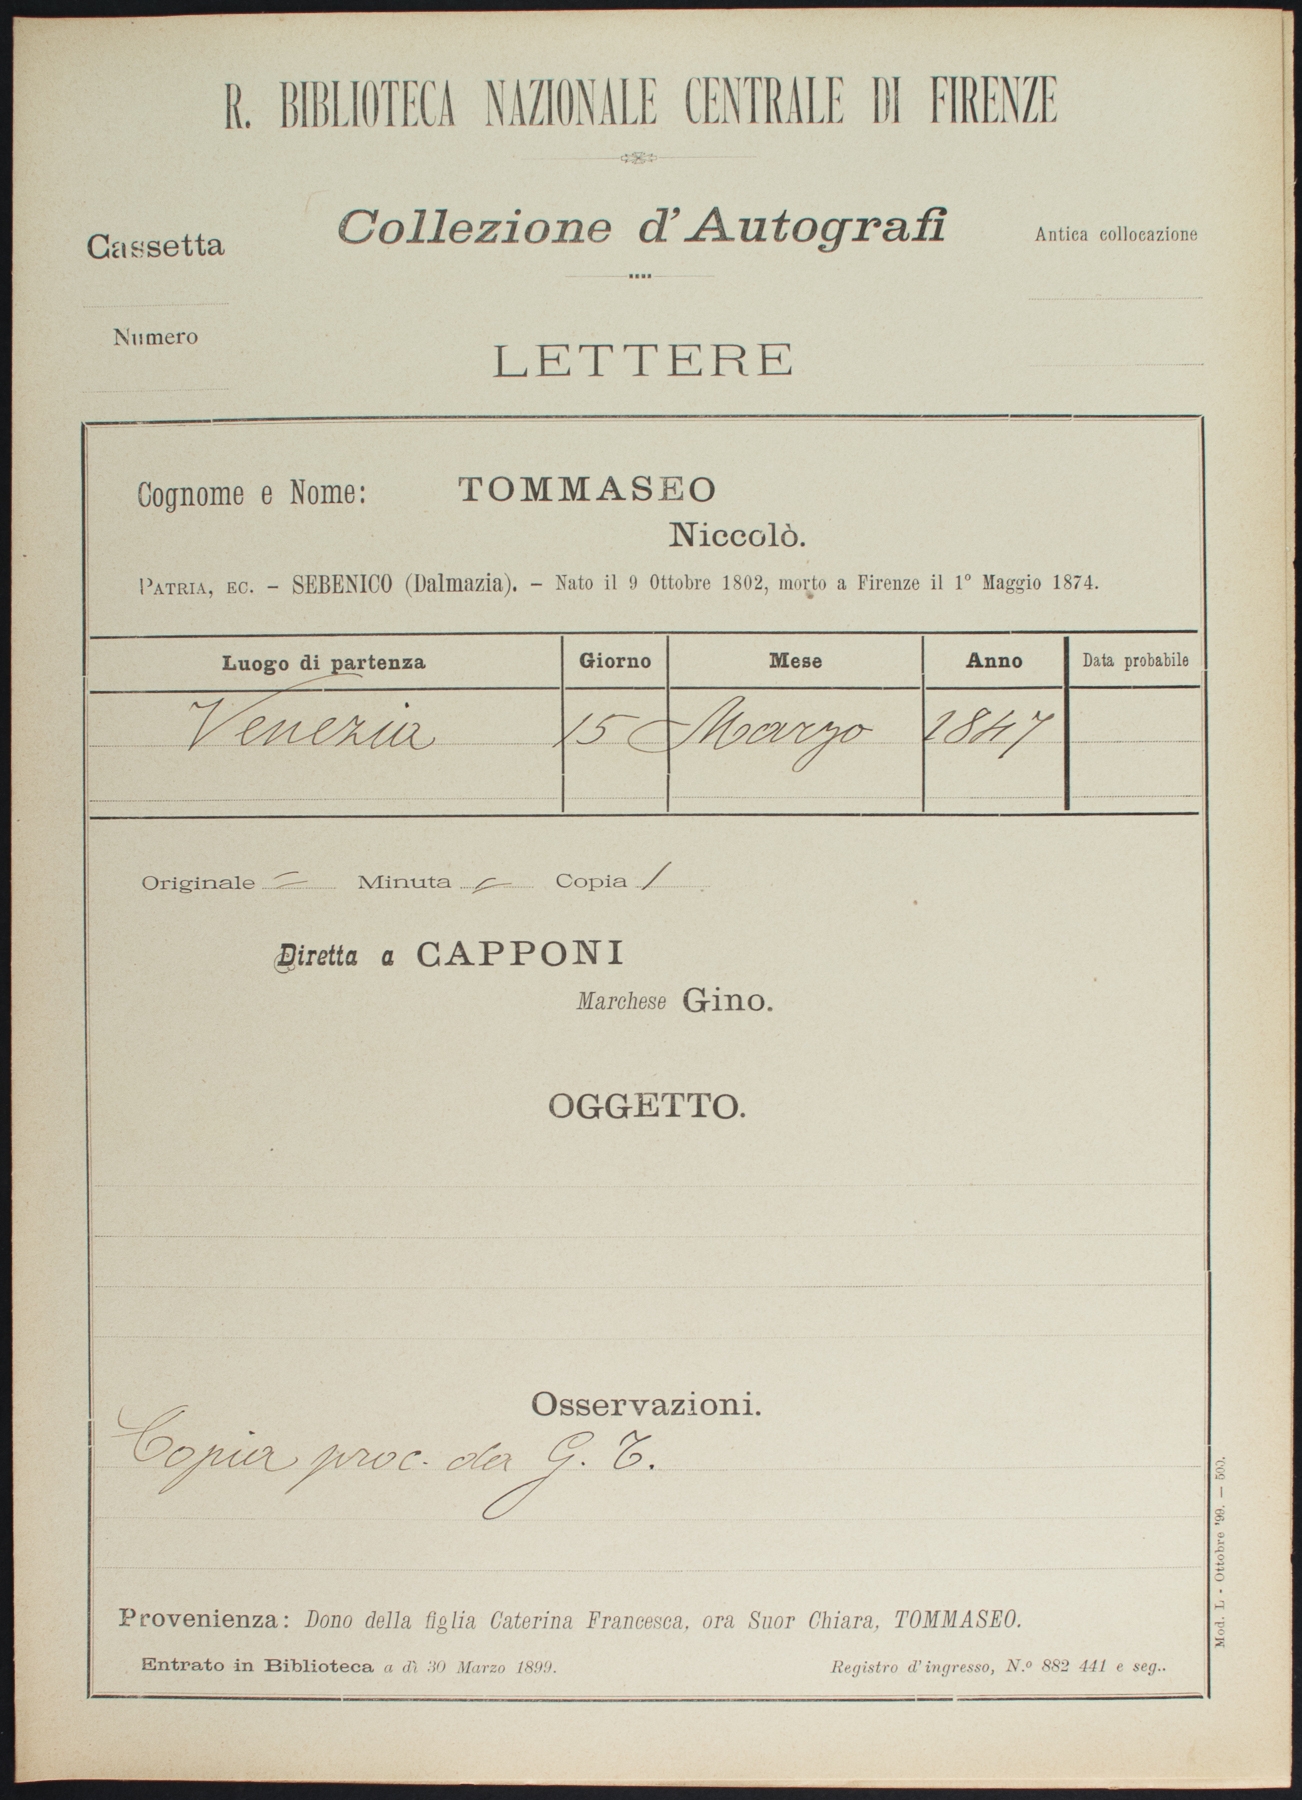 R. BIBLIOTECA NAZIONALE CENTRALE DI FIRENZE
Collezione d'Autografi
Cassetta
Antica collocazione
Numero
LETTERE
Cognome e Nome: TOMMASEO
Niccolò.
PATRIA, EC. - SEBENICO (Dalmazia). - Nato il 9 Ottobre 1802, morto a Firenze il 1° Maggio 1874.
Luogo di partenza Giorno Mese Anno Data probabile
Venezia 15 Marzo 1847
Originale = Minuta = Copia 1
Diretta a CAPPONI
Marchese Gino.
OGGETTO.
Osservazioni.
Copia proc. da G. T.
Provenienza: Dono della figlia Caterina Francesca, ora Suor Chiara, TOMMASEO.
Entrato in Biblioteca a dì 30 Marzo 1899. Registro d'ingresso, N.º 882 441 e seg..
Mod. L - Ottobre '99. — 500.